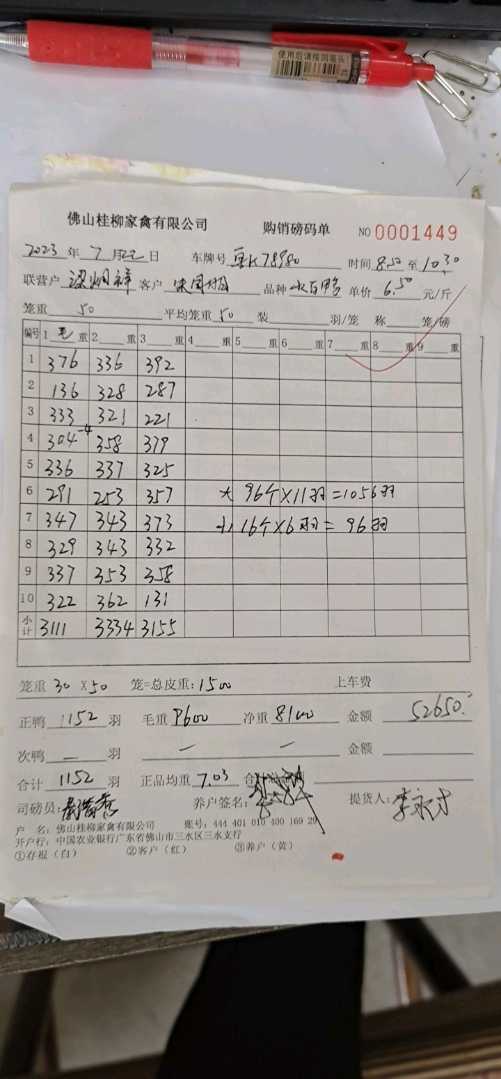 使用后请按回笔头
佛山桂柳家禽有限公司 购销磅码单 NO 0001449
2023 年 7 月 日 车牌号 粤K78980 时间 8.50 至 10.30
联营户 梁炯祥 客户 品种 水白鸭 单价 6.50 元/斤
笼重 50 平均笼重 50 装 羽/笼 称 笼/磅
编号 1 毛 重 2 重 3 重 4 重 5 重 6 重 7 重 8 重 9 重
1 376 336 392
2 136 328 287
3 333 321 221
4 304-4 358 379
5 336 337 325
6 291 253 357 大 96个×11羽=1056羽
7 347 343 373 小 16个×6羽=96羽
8 329 343 332
9 337 353 358
10 322 362 131
小计 3111 3334 3155
笼重 30 X 50 笼=总皮重: 1500 上车费
正鸭 1152 羽 毛重 9600 净重 8100 金额 52650.
次鸭 — 羽 — — 金额
合计 1152 羽 正品均重 7.03 合
司磅员: 养户签名: 提货人: 李永才
户 名: 佛山桂柳家禽有限公司 账号: 444 401 010 400 169 29
开户行: 中国农业银行广东省佛山市三水区三水支行
①存根(白) ②客户(红) ③养户(黄)